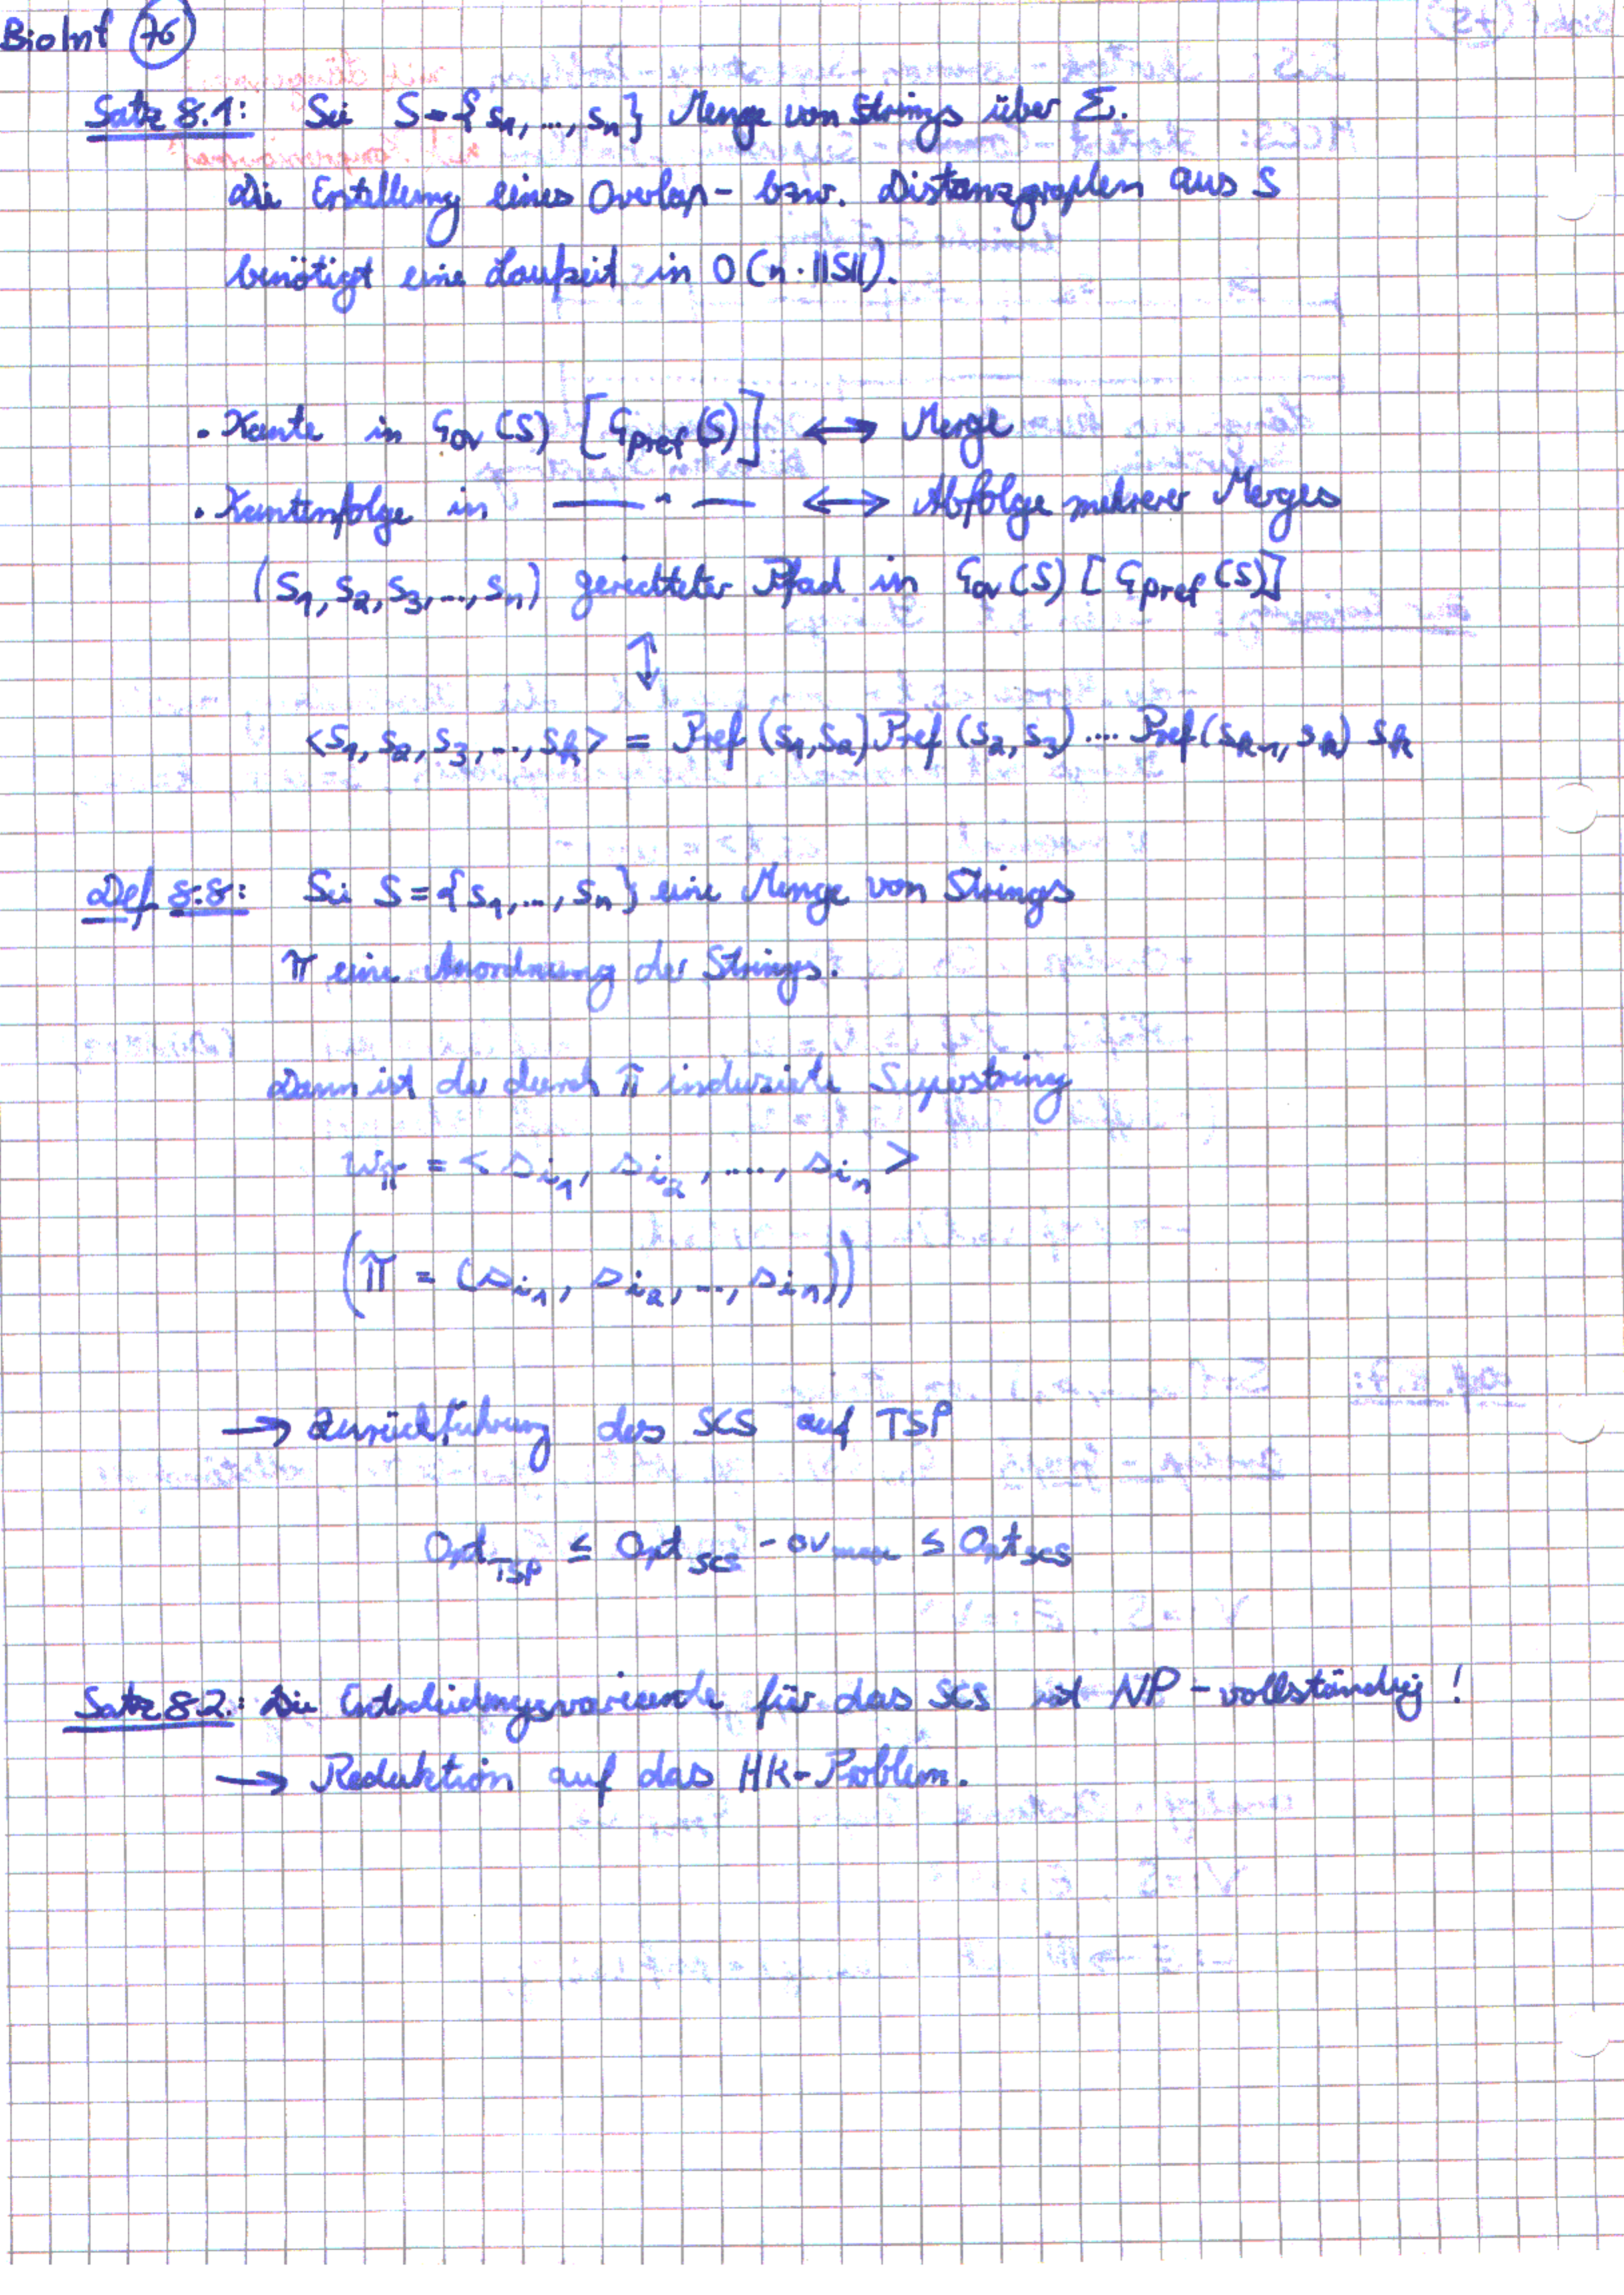 BioInf 76
Satz 8.1: Sei S = {s₁, ..., sₙ} Menge von Strings über Σ.
Die Erstellung eines Overlap- bzw. Distanzgraphen aus S
benötigt eine Laufzeit in O(n · ||S||).
· Kante in G_ov(S) [G_pref(S)] ↔ Merge
· Kantenfolge in —— " —— ↔ Abfolge mehrerer Merges
(s₁, s₂, s₃, ..., sₙ) gerichteter Pfad in G_ov(S) [G_pref(S)]
↕
<s₁, s₂, s₃, ..., s_k> = Pref(s₁, s₂) Pref(s₂, s₃) .... Pref(s_k-1, s_k) s_k
Def 8.8: Sei S = {s₁, ..., sₙ} eine Menge von Strings
π eine Anordnung der Strings.
Dann ist der durch π induzierte Superstring
w_π = < s_i₁, s_i₂, ...., s_iₙ >
(π = (s_i₁, s_i₂, ..., s_iₙ))
→ Zurückführung des SCS auf TSP
Opt_TSP ≤ Opt_SCS - ov_max ≤ Opt_SCS
Satz 8.2.: Die Entscheidungsvariante für das SCS ist NP-vollständig!
→ Reduktion auf das HK-Problem.